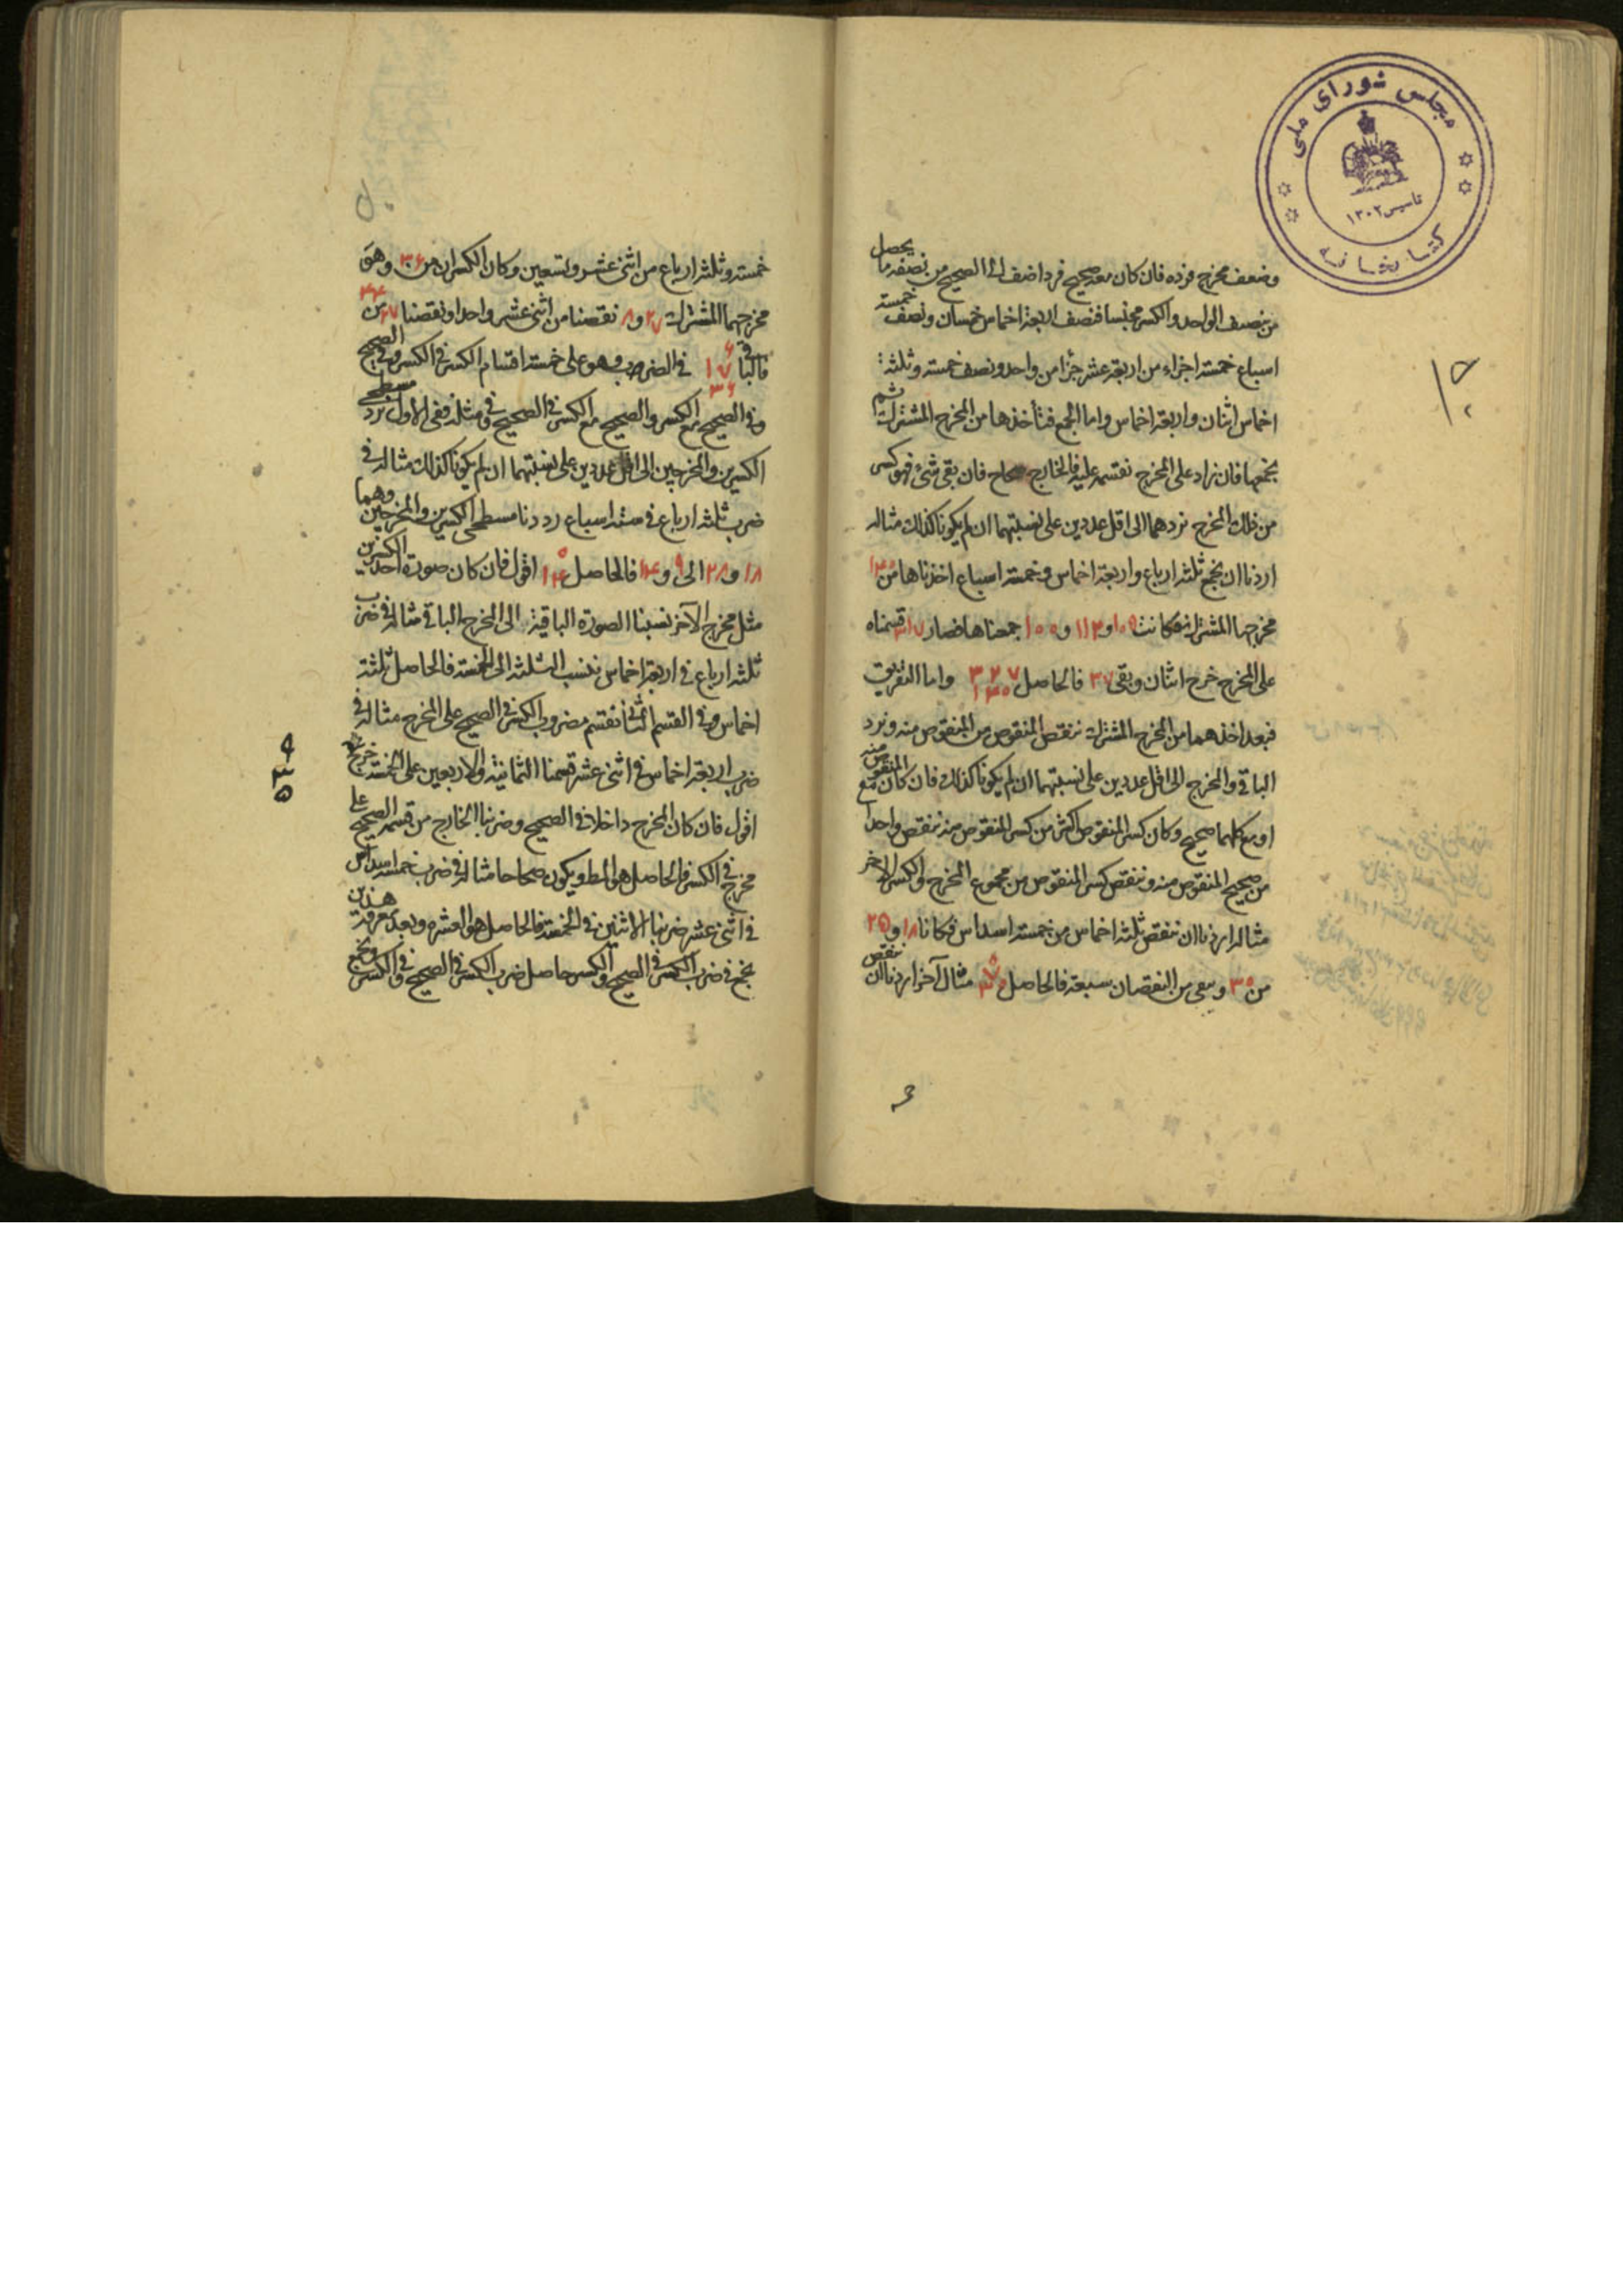 مجلس شورای ملی
تاسیس ۱۳۰۲
کتابخانه
وضعف مخرج فرده فان كان معه صحيح فرد اضف الى الصحيح من نصفه ما يحصل
من نصف الواحد والكسر مجنسا فنصف اربعة اخماس خمسان ونصف خمسة
اسباع خمسة اجزاء من اربعة عشر جزأ من واحد ونصف خمسة وثلثة
اخماس اثنان واربعة اخماس واما الجمع فتأخذها من المخرج المشترك ثم
نجمعها فان زاد على المخرج نقسمه عليه فالخارج صحاح فان بقى شئ فهو كسر
من ذلك المخرج نردهما الى اقل عددين على نسبتهما ان لم يكونا كذلك مثاله
اردنا ان نجمع ثلثة ارباع واربعة اخماس وخمسة اسباع اخذناها من ۱۴۰
مخرجها المشترك فكانت ۱۰۵ و ۱۱۲ و ۱۰۰ جمعناها فصار ۳۱۷ قسمناه
على المخرج خرج اثنان وبقى ۳۷ فالحاصل واما التفريق
فبعد اخذهما من المخرج المشترك ننقص المنقوص من المنقوص منه ونرد
الباقى والمخرج الى اقل عددين على نسبتهما ان لم يكونا كذلك فان كان مع المنقوص منه
او مع كليهما صحيح وكان كسر المنقوص اكثر من كسر المنقوص منه ننقص واحدا
من صحيح المنقوص منه وننقص كسر المنقوص من مجموع المخرج والكسر الاخر
مثاله اردنا ان ننقص ثلثة اخماس من خمسة اسداس فكانا ۱۸ و ۲۵
من ۳۰ وبقى من النقصان سبعة فالحاصل ۷ ۳۰ مثال آخر اردنا ان ننقص
خمسة وثلثة ارباع من اثنى عشر وتسعين وكان الكسران من ۳۶ وهو
مخرجهما المشترك ۲۷ و ۸ نقصنا من اثنى عشر واحدا ونقصنا ۲۷ من ۴۴
فالباقى ۶ ۱۷ ۳۶ فى الضرب وهو على خمسة اقسام الكسر فى الكسر وفى الصحيح
وفى الصحيح مع الكسر والصحيح مع الكسر فى الصحيح وفى مثله ففى الاول نرد مسطحى
الكسرين والمخرجين الى اقل عددين على نسبتهما ان لم يكونا كذلك مثاله فى
ضرب ثلثة ارباع فى ستة اسباع رددنا مسطحى الكسرين والمخرجين وهما
۱۸ و ۲۸ الى ۹ و ۱۴ فالحاصل ۹ ۱۴ اقول فان كان صورة احد الكسرين
مثل مخرج الآخر نسبنا الصورة الباقية الى المخرج الباقى مثاله فى ضرب
ثلثة ارباع فى اربعة اخماس ننسب الثلثة الى الخمسة فالحاصل ثلثة
اخماس وفى القسم الثانى نقسم مضروب الكسر فى الصحيح على المخرج مثاله فى
ضرب اربعة اخماس فى اثنى عشر قسمنا الثمانية والاربعين على الخمسة خرج
۹
۳
۵
اقول فان كان المخرج داخلا فى الصحيح وضربنا الخارج من قسمة الصحيح على
مخرج فى الكسر فالحاصل هو المط ويكون صحاحا مثاله فى ضرب خمسة اسداس
فى اثنى عشر ضربنا الاثنين فى الخمسة فالحاصل هو العشرة وبعد معرفة هذين
نجمع فى ضرب الكسر فى الصحيح والكسر حاصل ضرب الكسر فى الصحيح وفى الكسر ونجمع